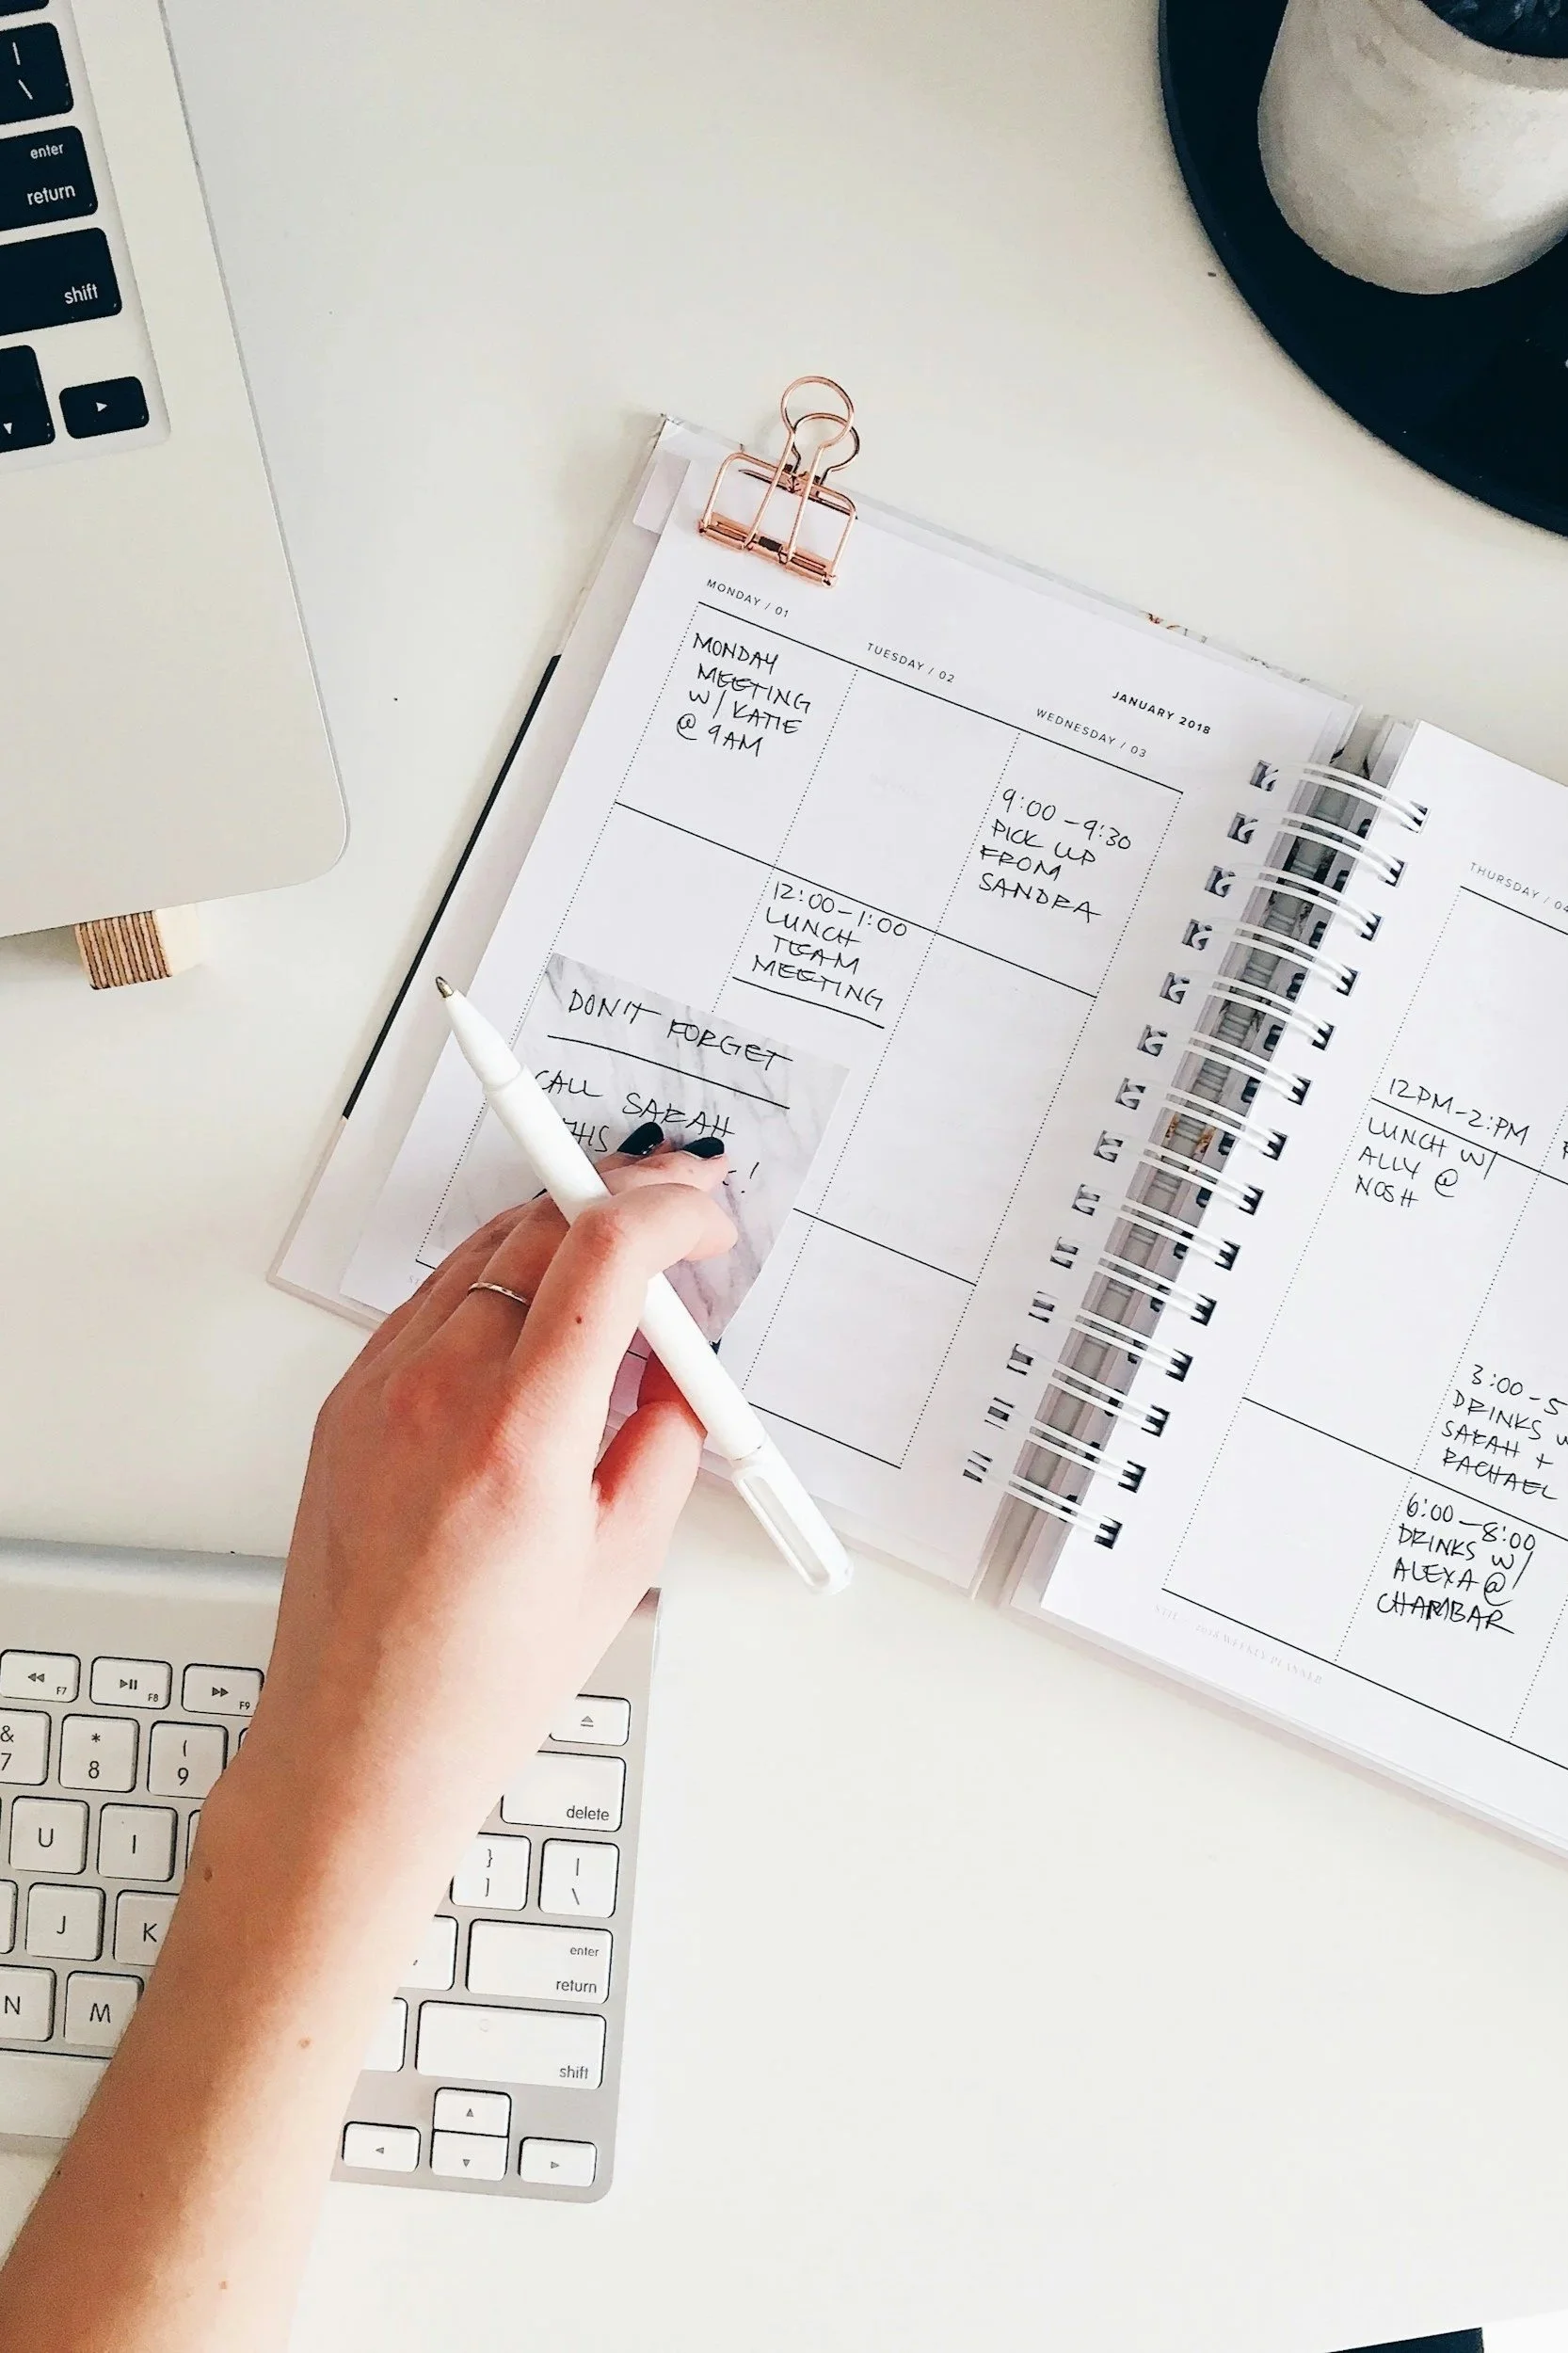 |
\
enter
return
shift
MONDAY / 01
MONDAY
MEETING
W/ KATIE
@ 9AM
TUESDAY / 02
12:00-1:00
LUNCH
TEAM
MEETING
JANUARY 2018
WEDNESDAY / 03
9:00-9:30
PICK UP
FROM
SANDRA
DON'T FORGET
CALL SARAH
THIS
!
THURSDAY / 04
12PM-2:PM
LUNCH W/
ALLY @
NOSH
3:00-5
DRINKS W
SARAH +
RACHAEL
6:00-8:00
DRINKS W/
ALEXA @
CHAMBAR
2018 WEEKLY PLANNER
F7 F8 F9
& * (
7 8 9
delete
U I } |
] \
J K enter
return
N M shift